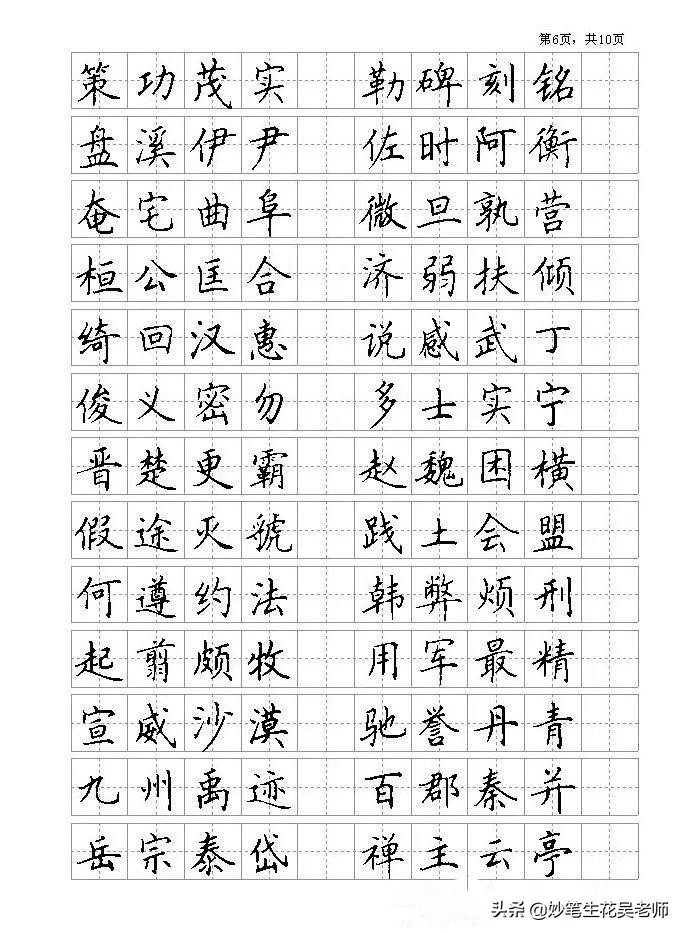 第6页，共10页
策功茂实 勒碑刻铭
盘溪伊尹 佐时阿衡
奄宅曲阜 微旦孰营
桓公匡合 济弱扶倾
绮回汉惠 说感武丁
俊义密勿 多士实宁
晋楚更霸 赵魏困横
假途灭虢 践土会盟
何遵约法 韩弊烦刑
起翦颇牧 用军最精
宣威沙漠 驰誉丹青
九州禹迹 百郡秦并
岳宗泰岱 禅主云亭
头条 @妙笔生花吴老师